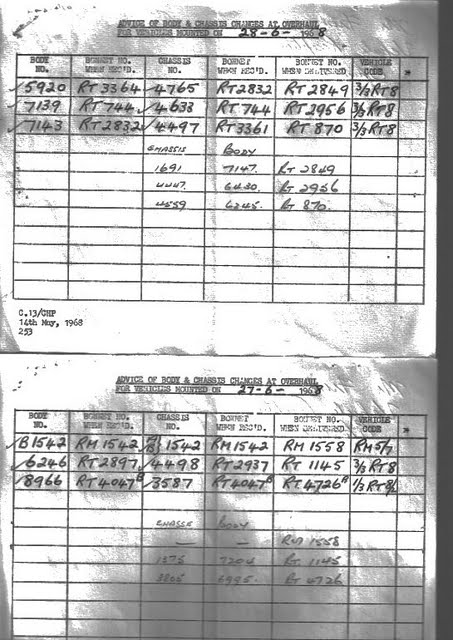 ADVICE OF BODY & CHASSIS CHANGES AT OVERHAUL
FOR VEHICLES MOUNTED ON 28-6- 1968
BODY NO. BONNET NO. WHEN REC'D. CHASSIS NO. BONNET WHEN REC'D. BONNET NO. WHEN DELIVERED. VEHICLE CODE
✓5920 RT 3364 ✓4765 RT2832 RT 2849 3/3 RT8
✓7139 RT 744 ✓4633 RT 744 RT 2956 3/3 RT8
✓7143 RT 2832 ✓4497 RT 3361 RT 870 3/3 RT8
CHASSIS BODY
1691 7147. RT 2849
4447. 6430. RT 2956
4559 6245. RT 870.
C.13/CHP
14th May, 1968
253
ADVICE OF BODY & CHASSIS CHANGES AT OVERHAUL
FOR VEHICLES MOUNTED ON 27-6- 1968
BODY NO. BONNET NO. WHEN REC'D. CHASSIS NO. BONNET WHEN REC'D. BONNET NO. WHEN DELIVERED. VEHICLE CODE
✓B1542 RM 1542 1542 RM 1542 RM 1558 RM 5/7
✓6246 RT 2897 ✓4498 RT 2937 RT 1145 3/3 RT8
✓8966 RT 4047 ✓3587 RT 4047 RT 4726
CHASSE BODY
— — RM 1558
1375 7204 RT 1145
6995. RT 4726